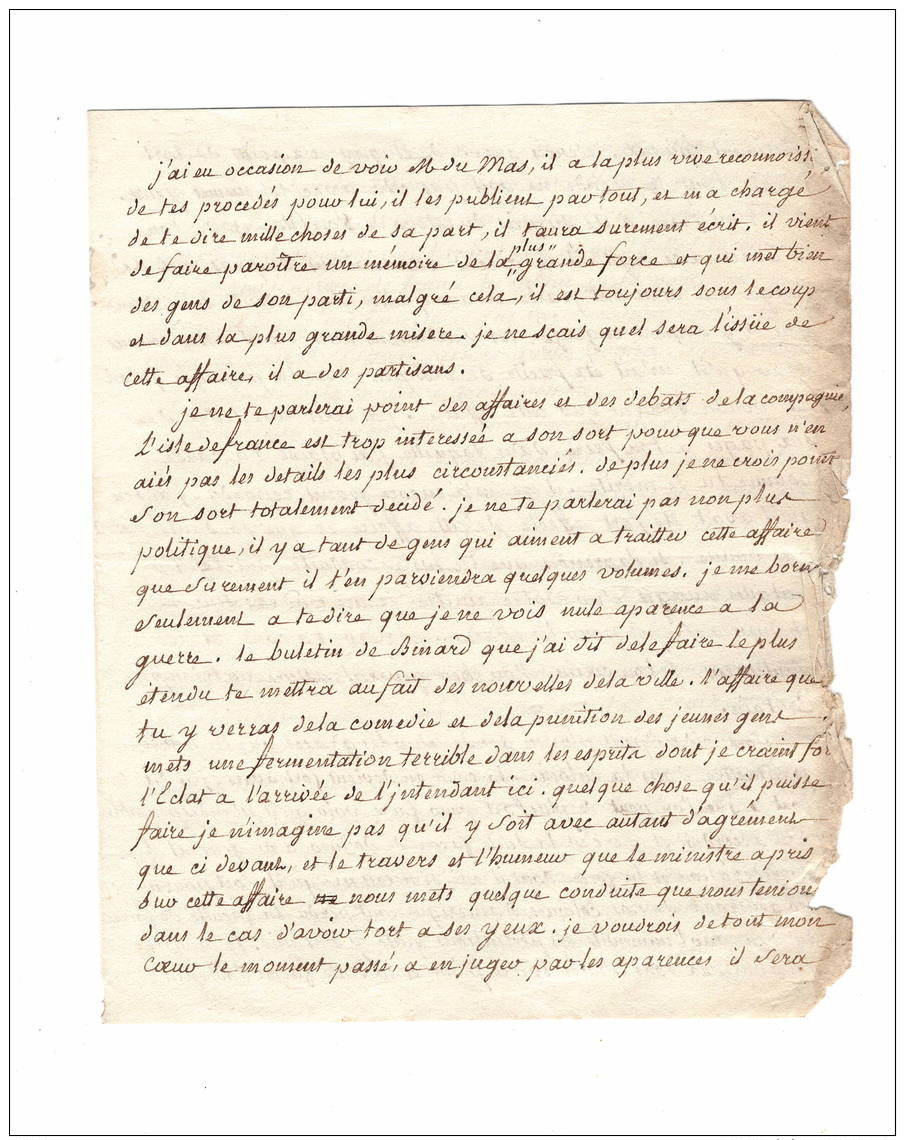 j'ai eu occasion de voir M du Mas, il a la plus vive reconnoiss
de tes procedés pour lui, il les publient partout, et m a chargé
de te dire mille choses de sa part, il t'aura surement écrit. il vient
de faire paroître un mémoire de la "plus" grande force et qui met bien
des gens de son parti, malgré cela, il est toujours sous le coup
et dans la plus grande misere. je ne scais quel sera l'issüe de
cette affaire, il a des partisans.
je ne te parlerai point des affaires et des debats de la compagnie,
L'isle de france est trop interessée a son sort pour que vous n'en
aiés pas les details les plus circonstanciés. de plus je ne crois point
son sort totalement decidé. je ne te parlerai pas non plus
politique, il y a tant de gens qui aiment a traitter cette affaire
que surement il t'en parviendra quelques volumes. je me born
seulement a te dire que je ne vois nule aparence a la
guerre. le buletin de Binard que j'ai dit de le faire le plus
étendu te mettra au fait des nouvelles de la ville. l'affaire que
tu y verras de la comedie et de la punition des jeunes gens
mets une fermentation terrible dans les esprits dont je craint for
l'Eclat a l'arrivée de l'jntendant ici. quelque chose qu'il puisse
faire je n'imagine pas qu'il y soit avec autant d'agrément
que ci devant, et le travers et l'humeur que le ministre a pris
sur cette affaire nous mets quelque conduite que nous tenion
dans le cas d'avoir tort a ses yeux. je voudrois de tout mon
Cœur le moment passé, a en juger par les aparences il sera